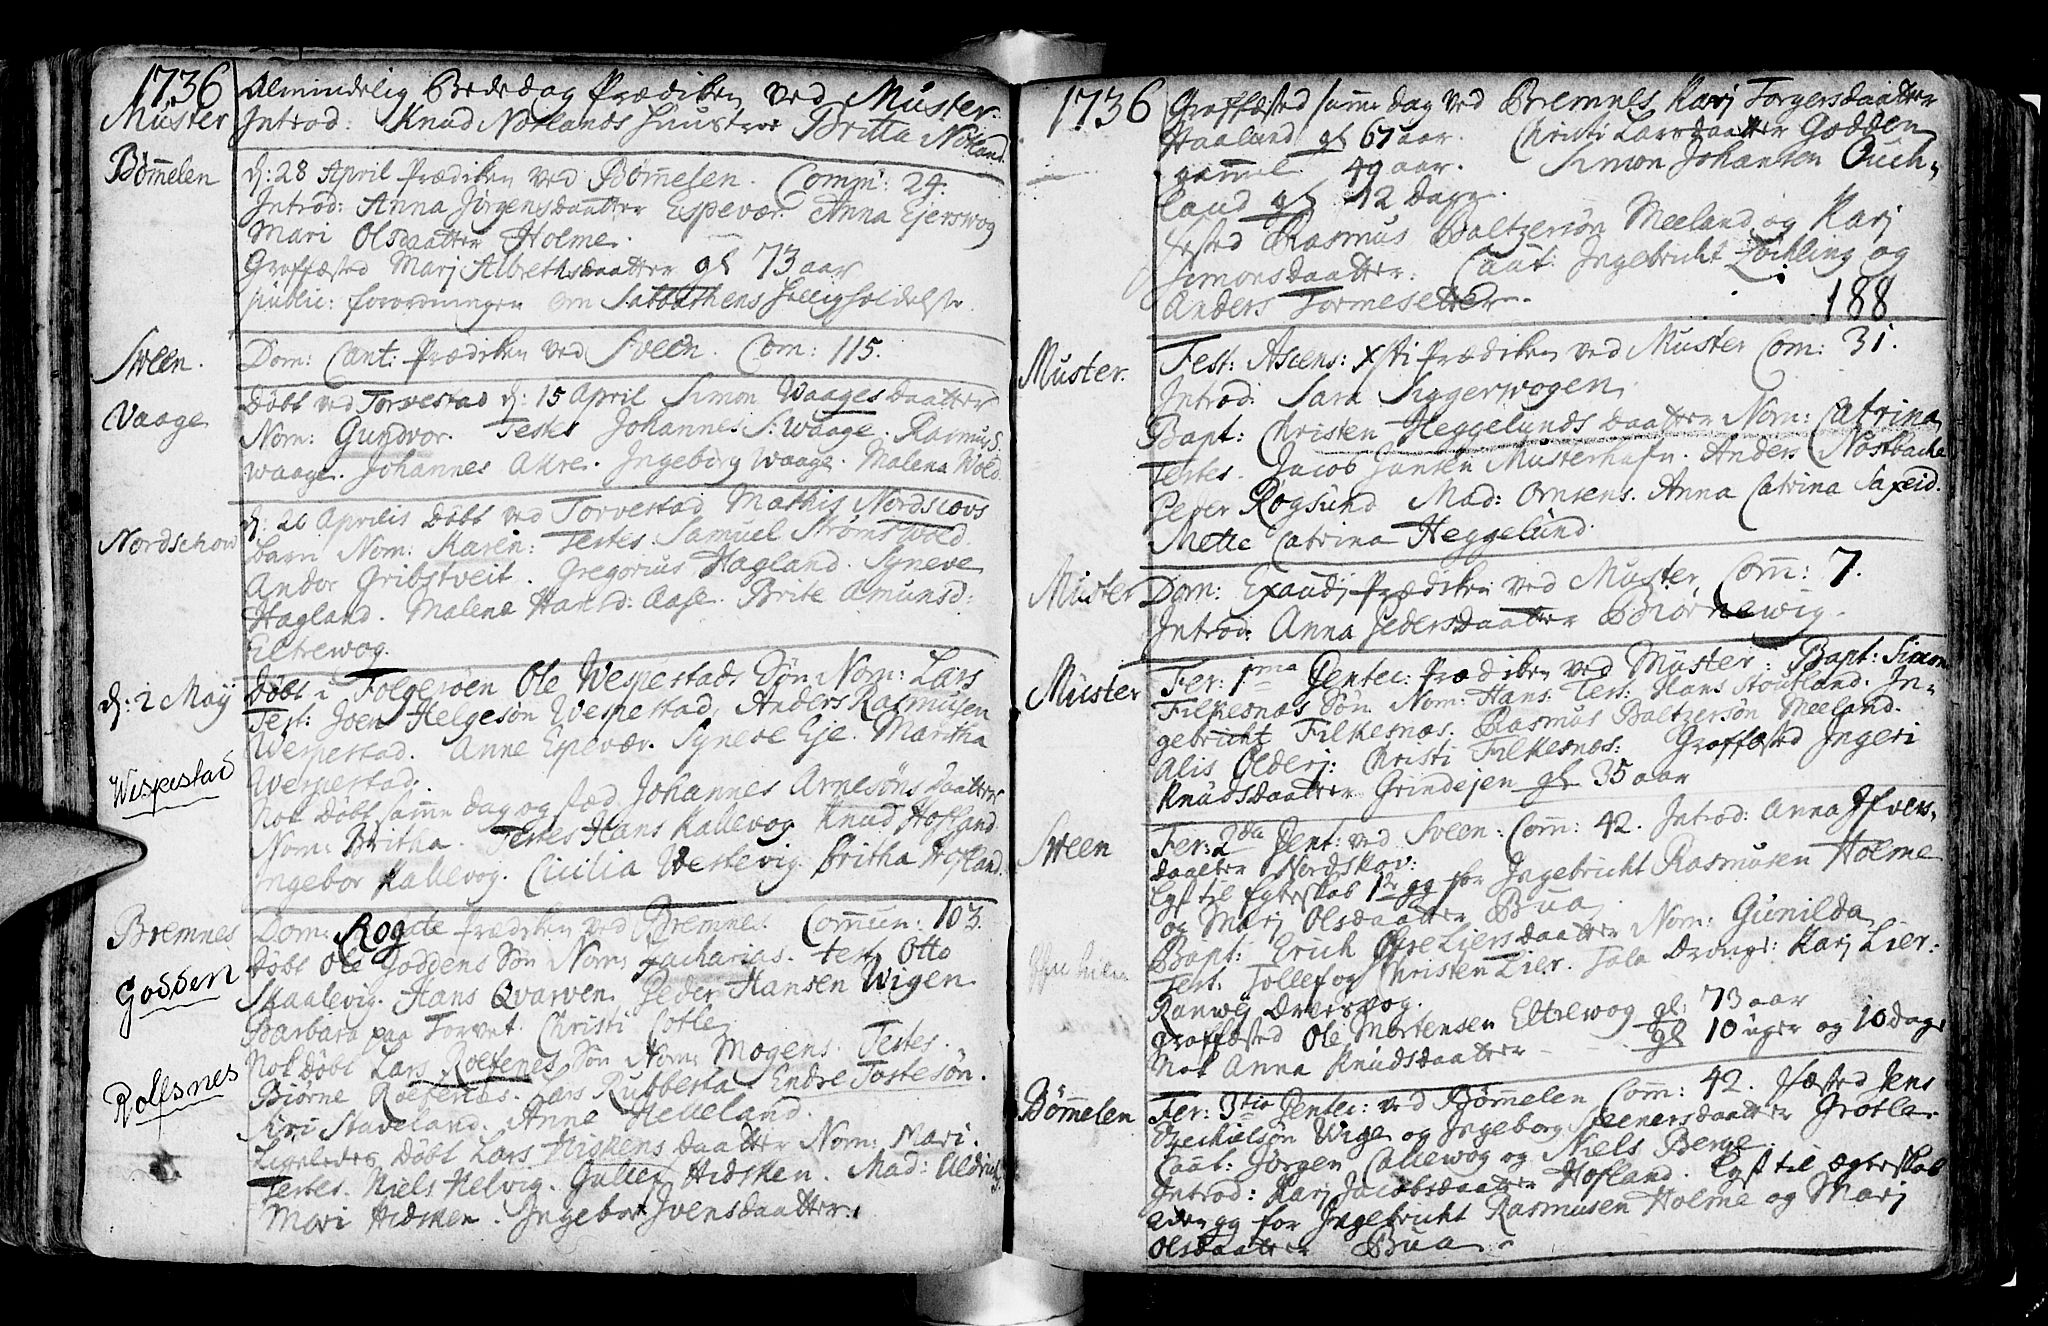 1736
Almindelig Bededag Prædiken ved Müster.
Müster
Introd: Knud Notlands Huustroe Britta Notland
Bömmelen
d: 28 April Prædiken ved Bömmelen. Comm: 24.
Introd: Anna Jörgensdaatter Espevær. Anna Ejerswog
Mari Olsdaatter Holme.
Graffæsted Marj Albrethsdaatter gl 73 aar
public: forordningen om Sabbathens helligholdelse
Sveen.
Dom: Cant: Prædiken ved Sveen. Com: 115.
Vaage
Döbt ved Torvestad d: 15 April Simon Waages daatter
Nom: Gundvor. Testes Johannes S: Waage. Rasmus S.
Waage. Johannes Akre. Ingeborg Waage. Malena Wold.
Nordschow
d: 21 Aprilis Döbt ved Torvestad Mathis Nordscovs
barn Nom: Karen: Testes Samuel Ströms Wold.
Andor Gribstveit. Gregorius Hagland. Syneve
Hagland. Malene Hansd: Aase. Brite Amunsd:
Eltrewog.
d: 2 Maÿ
Döbt i Folgeröen Ole Wespestads Sön Nom: Lars
Test: Joen Helgesön Wespestad, Anders Rasmusen
Wespestad. Anne Espevær. Syneve Eje. Martha
Wespestad
Wespestad.
Nok Döbt samme dag og sted Johannes Arnesöns daatter
Nom: Britha. Testes Hans Kallevog Knud Hofland
Ingebor Kallevog. Cicilia Westevig. Britha Hofland.
Bremnes
Dom: Rogate Prædiken ved Bremnes. Commun: 103.
Godden
Döbt Ole Goddens Sön Nom: Zacharias. Test. Otto
Skaalevig. Hans Qvarven. Peder Hansen Wigen
Barbara paa Torvet. Christi Cotle
Nok Döbt Lars Roefenes Sön Nom: Mogens. Testes.
Rolfsnes
Biörne Roefenes. Lars Rubbesta. Endre Tostesön.
Siri Staveland. Anne Helleland.
Ligeledes Döbt Lars Hiskens daatter Nom: Mari.
Testes. Niels Helvig. Gullef Hidsken. Mad: Aldrich
Mari Hidsken. Ingebor Ivensdaatter.
1736
Graffæsted samme dag ved Bremnes Karj Torgersdaatter
Haaland gl 67 aar. Christi Larsdaatter Godden
gammel 49 aar. Simon Johansen Ouch-
land gl 12 dage.
Fested Rasmus Baltzersön Meeland og Karj
Simonsdaatter. Caut: Ingebricht Zöchling og
Anders Tormesetter.
188
Muster.
Fest: Ascens: Xsti Prædiken ved Muster Com: 31.
Introd: Sara Siggerwogen
Bapt: Christen Heggelunds daatter Nom: Catrina
Testes. Jacob Jansen Musterhafn. Anders Nostbache
Peder Rogsund Mad: Ornsens. Anna Catrina Saxeid.
Mette Catrina Heggelund.
Müster
Dom: Exaudj Prædiken ved Muster Comm: 7.
Introd: Anna Pedersdaatter Biörnewig.
Müster
Fer: 1ma Pentec: Prædiken ved Müster: Bapt: Simon
Filkesnæs Sön Nom: Hans. Tes: Hans Stoutland. In-
gebricht Filkesnæs. Rasmus Baltzersön Meeland.
Alis Olderj: Christi Filkesnæs: Graffæsted Ingeri
Knudsdaatter Grindejen gl 35 aar
Sveen
Fer: 2da Pent: ved Sveen: Comm: 42. Introd: Anna Ifvers-
daatter Nordskov:
Lyst til Egteskab 1te gg for Ingebricht Rasmusen Holme
og Marj Olsdaatter Bua
Bapt: Erich Öfre Liers daatter Nom: Gunilda
Test: Tollef og Christen Lier. Tala Drænge: Karj Lier:
Ranweÿ Dreersvog.
Graffæsted Ole Mortensen Eltrewog gl: 73 aar
Nok Anna Knudsdaatter gl 10 uger og 10 dage
Bömmelen
Fer: 3tia Pentec: ved Bömmelen Comm: 42. Fæsted Jens
Ezechielsön Wige og Ingeborg Steenersdaatter Grotle.
Caut: Jörgen Callewog og Niels Berge.
Introd: Karj Jacobsdaatter Hofland. Lyst til ægteskab
gg for Ingebricht Rasmusen Holme og Marj
Olsdaatter Bua